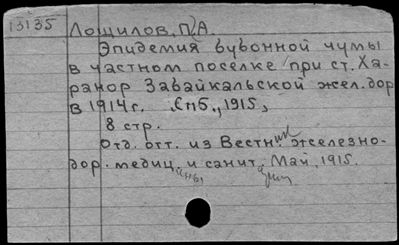 13135 Лощилов, П. А.
Эпидемия бубонной чумы
в частном поселке при ст. Ха-
ранор Забайкальской жел. дор
в 1914 г. Спб., 1915,
8 стр.
Отд. отт. из Вестн. железно-
дор. медиц. и санит. Май, 1915.